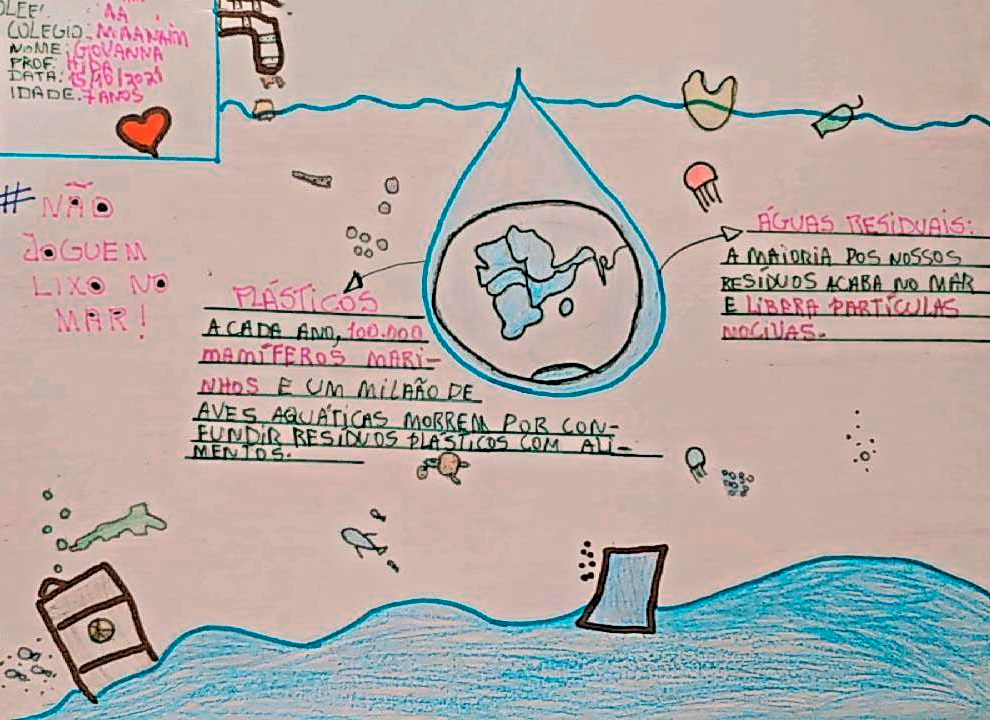 AA
COLEGIO: MAANAIM
NOME: GIOVANNA
PROF: HIDA
DATA: 15/06/2021
IDADE. 7 ANOS
# NÃO
JOGUEM
LIXO NO
MAR!
PLÁSTICOS
A CADA ANO, 100.000
MAMÍFEROS MARI-
NHOS E UM MILAÃO DE
AVES AQUÁTICAS MORREM POR CON-
FUNDIR RESÍDUOS PLÁSTICOS COM ALI-
MENTOS.
ÁGUAS RESIDUAIS:
A MAIORIA POS NOSSOS
RESÍDUOS ACABA NO MAR
E LIBERA PARTÍCULAS
NOCIVAS.